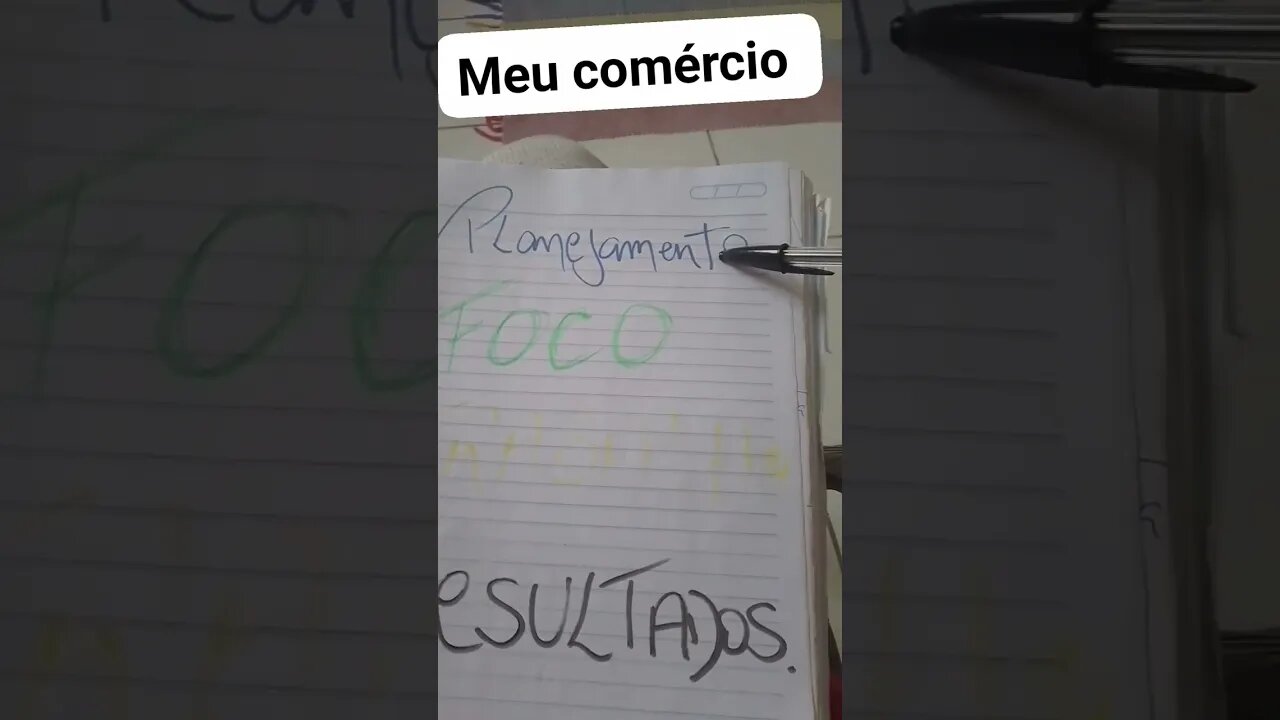 Meu comércio
Planejamento
FOCO
RESULTADOS.